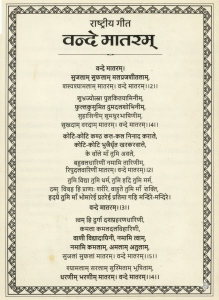 राष्ट्रीय गीत
वन्दे मातरम्
वन्दे मातरम्।
सुजलाम् सुफलाम् मलयजशीतलाम्,
शस्यश्यामलाम् मातरम्। वन्दे मातरम्।।1।।
शुभ्रज्योत्स्ना पुलकितयामिनीम्,
फुल्लकुसुमित द्रुमदलशोभिनीम्,
सुहासिनीम् सुमधुरभाषिणीम्,
सुखदाम् वरदाम् मातरम्। वन्दे मातरम्।।
कोटि-कोटि कण्ठ कल-कल निनाद कराले,
कोटि-कोटि भुजैर्धृत खरकरवाले,
के बोले माँ तुमि अबले,
बहुबलधारिणीं नमामि तारिणीम्,
रिपुदलवारिणीं मातरम्। वन्दे मातरम्।।
तुमि विद्या तुमि धर्म, तुमि हृदि तुमि मर्म,
त्वं हि प्राणाः शरीरे, बाहुते तुमि माँ शक्ति,
हृदये तुमि माँ भक्ति, प्रतिमा गडि मन्दिरे-मन्दिरे।
वन्दे मातरम्।
त्वम् हि दुर्गा दशप्रहरणधारिणी,
कमला कमलदलविहारिणी,
वाणी विद्यादायिनी, नमामि त्वाम्,
नमामि कमलाम्, अमलाम् अतुलाम्,
सुजलां सुफलां मातरम्। वन्दे मातरम्।।
श्यामलाम् सरलाम् सुस्मिताम् भूषिताम्,
धरणीम् भरणीम् मातरम्। वन्दे मातरम्।।